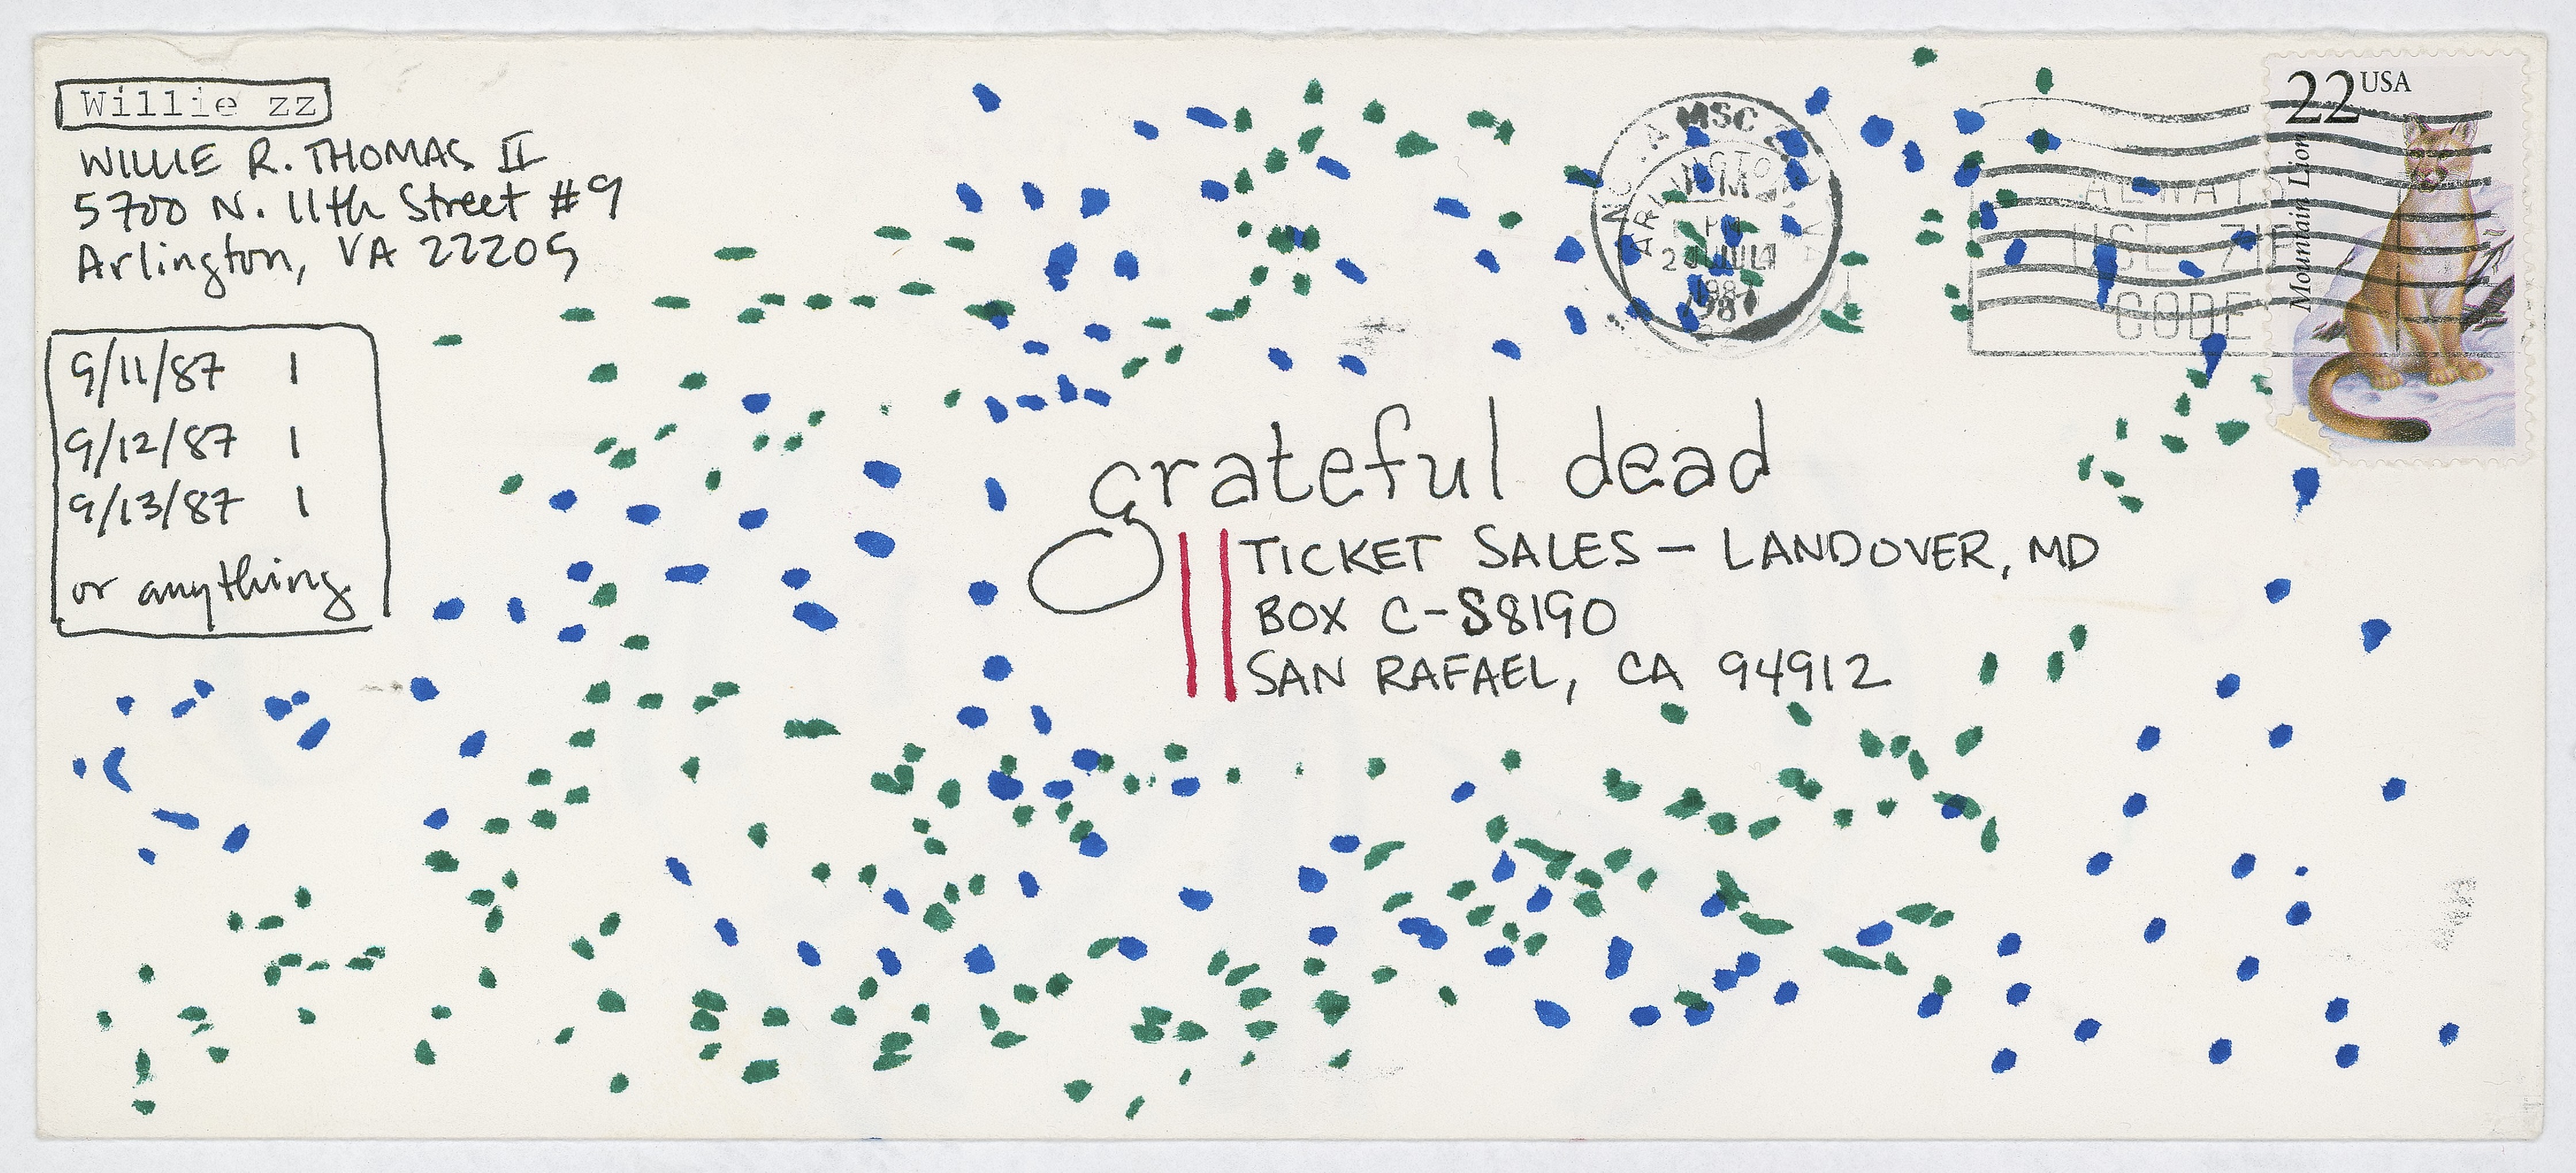 Willie zz
WILLIE R. THOMAS II
5700 N. 11th Street #9
Arlington, VA 22205
9/11/87 1
9/12/87 1
9/13/87 1
or anything
grateful dead
TICKET SALES – LANDOVER, MD
BOX C-S8190
SAN RAFAEL, CA 94912
MSC
PM
1987
ALWAYS
USE ZIP
CODE
22 USA
Mountain Lion